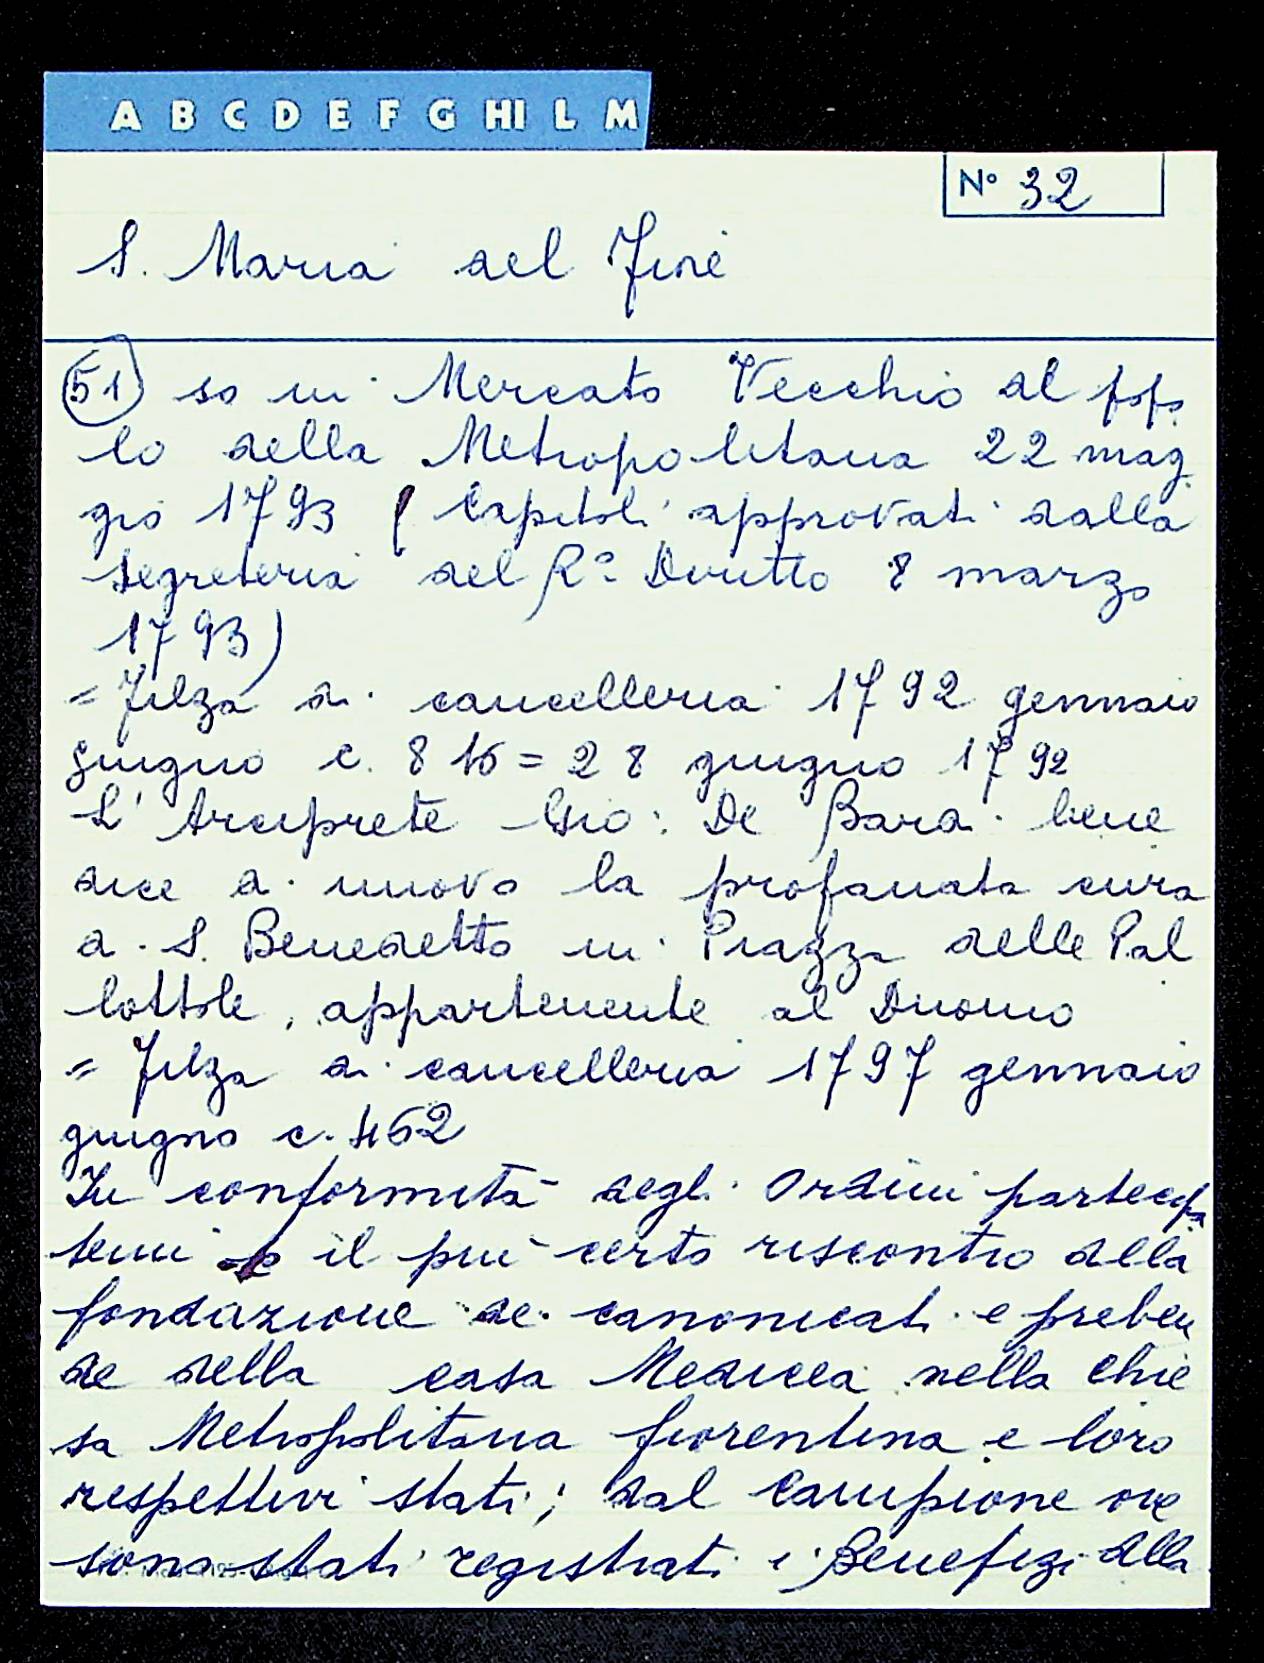 A B C D E F G HI L M
N° 32
S. Maria del Fiore
(51) so in Mercato Vecchio al popo
lo della Metropolitana 22 mag
gio 1793 (Capitoli approvati dalla
segreteria del R° Diritto 8 marzo
1793)
= Filza di cancelleria 1792 gennaio
giugno c. 816 = 28 giugno 1792
L'Arciprete Gio: De Bara bene
dice di nuovo la profanata cura
di S. Benedetto in Piazza delle Pal
lottole, appartenente al Duomo
= Filza di cancelleria 1797 gennaio
giugno c. 462
In conformità degli Ordini partecipa
temi e il più certo riscontro della
fondazione de canonicati e preben
de della casa Medicea nella chie
sa Metropolitana fiorentina e loro
respettivi stati; dal Campione ove
sono stati registrati i Benefizi alla